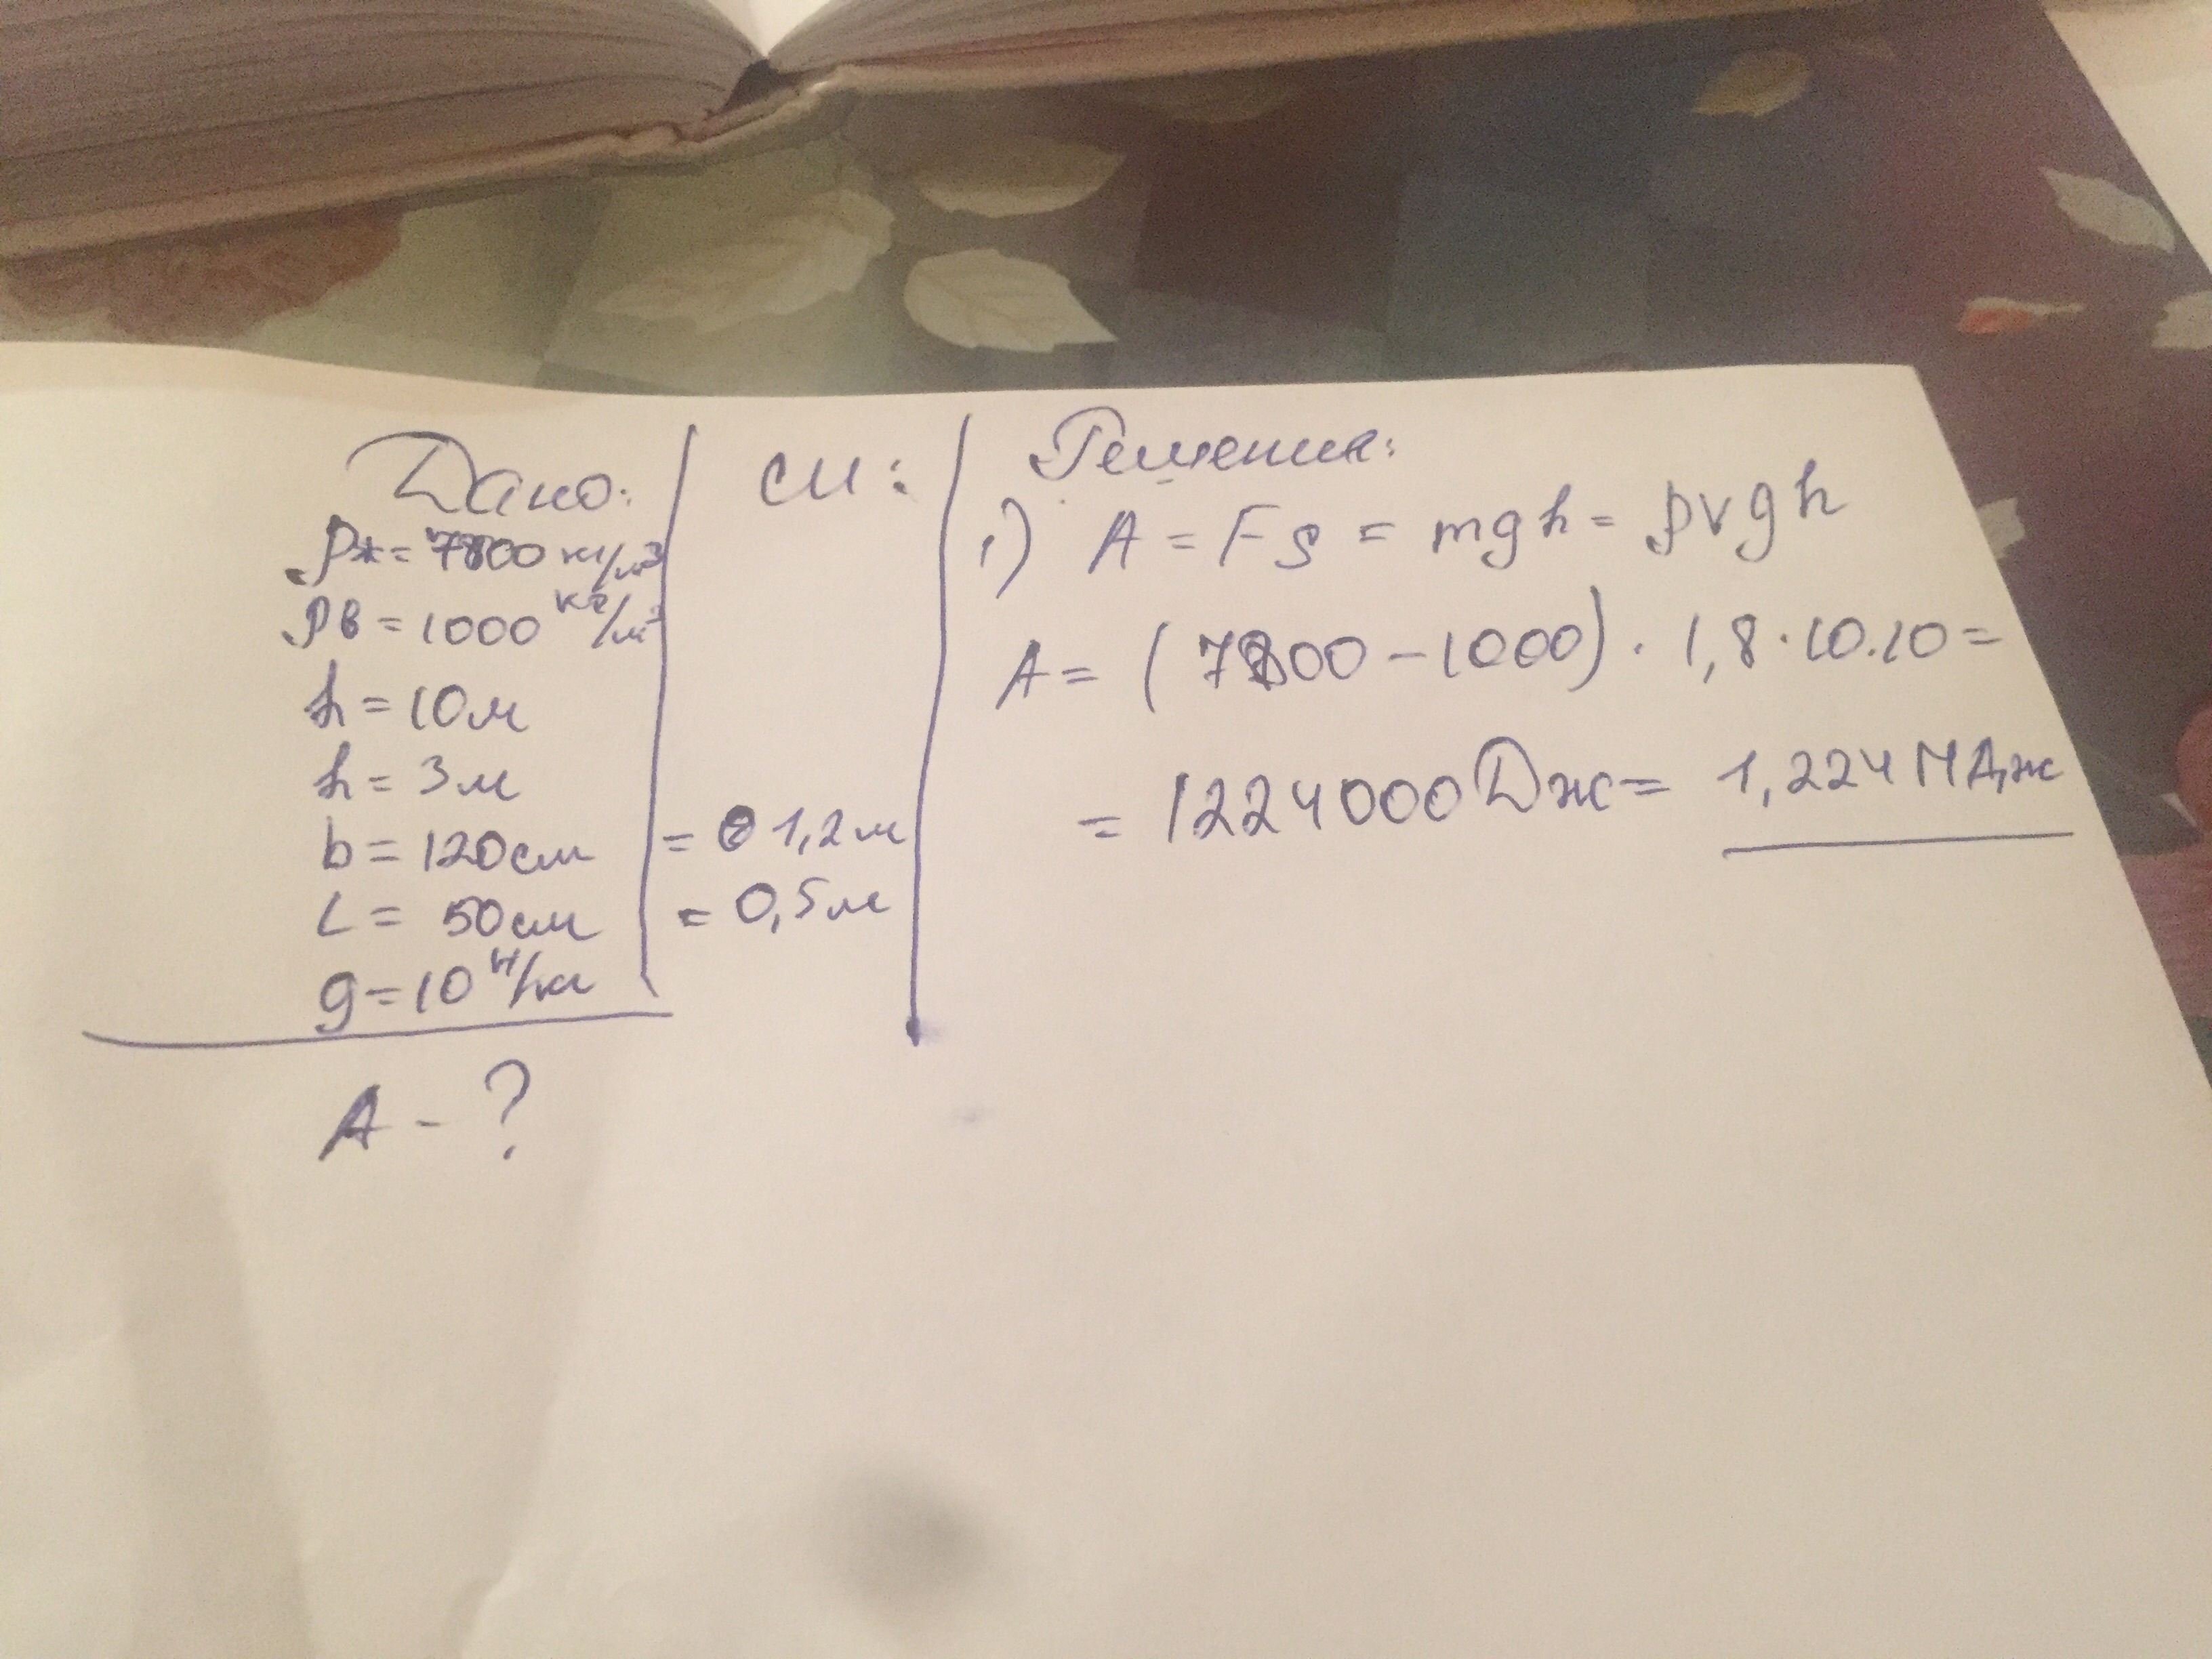 Дано:
ρж = 7800 кг/м³
ρв = 1000 кг/м³
h = 10м
h = 3м
b = 120см
L = 50см
g = 10 Н/кг
А - ?
СИ:
= 1,2м
= 0,5м
Решения:
1) A = Fs = mgh = ρvgh
A = (7800 - 1000) · 1,8 · 10.10 =
= 1224000 Дж = 1,224 МДж